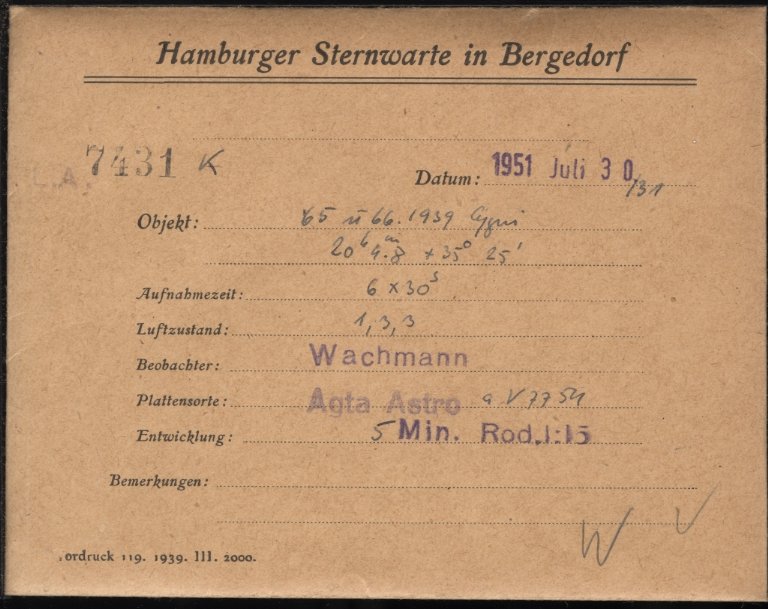 Hamburger Sternwarte in Bergedorf
7431 K
L.A.
Datum: 1951 Juli 30/31
Objekt: 65 u 66.1939 Cygni
20h 4m.8 +35° 25'
Aufnahmezeit: 6 x 30s
Luftzustand: 1,3,3
Beobachter: Wachmann
Plattensorte: Agfa Astro
Entwicklung: 5 Min. Rod.1:15
Bemerkungen:
W V
ordruck 119. 1939. III. 2000.